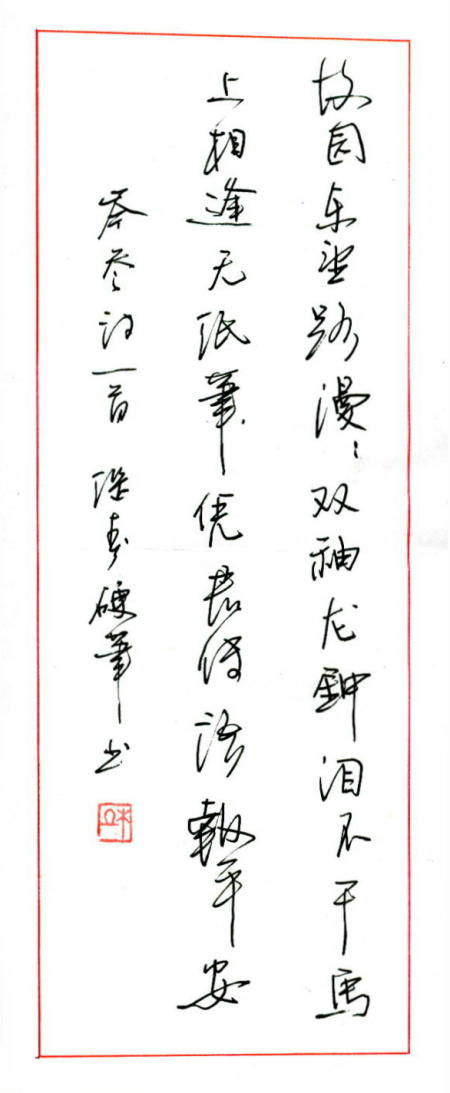 故园东望路漫〻双袖龙钟泪不干马
上相逢无纸笔凭君传语报平安
岑参诗一首 硬笔书